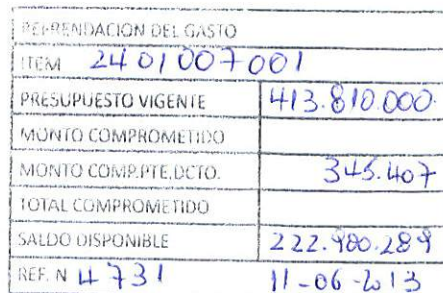 REFRENDACION DEL GASTO
ITEM 2401007001
PRESUPUESTO VIGENTE 413.810.000
MONTO COMPROMETIDO
MONTO COMP.PTE.DCTO. 345.407
TOTAL COMPROMETIDO
SALDO DISPONIBLE 222.900.289
REF. N 4731 11-06-2013